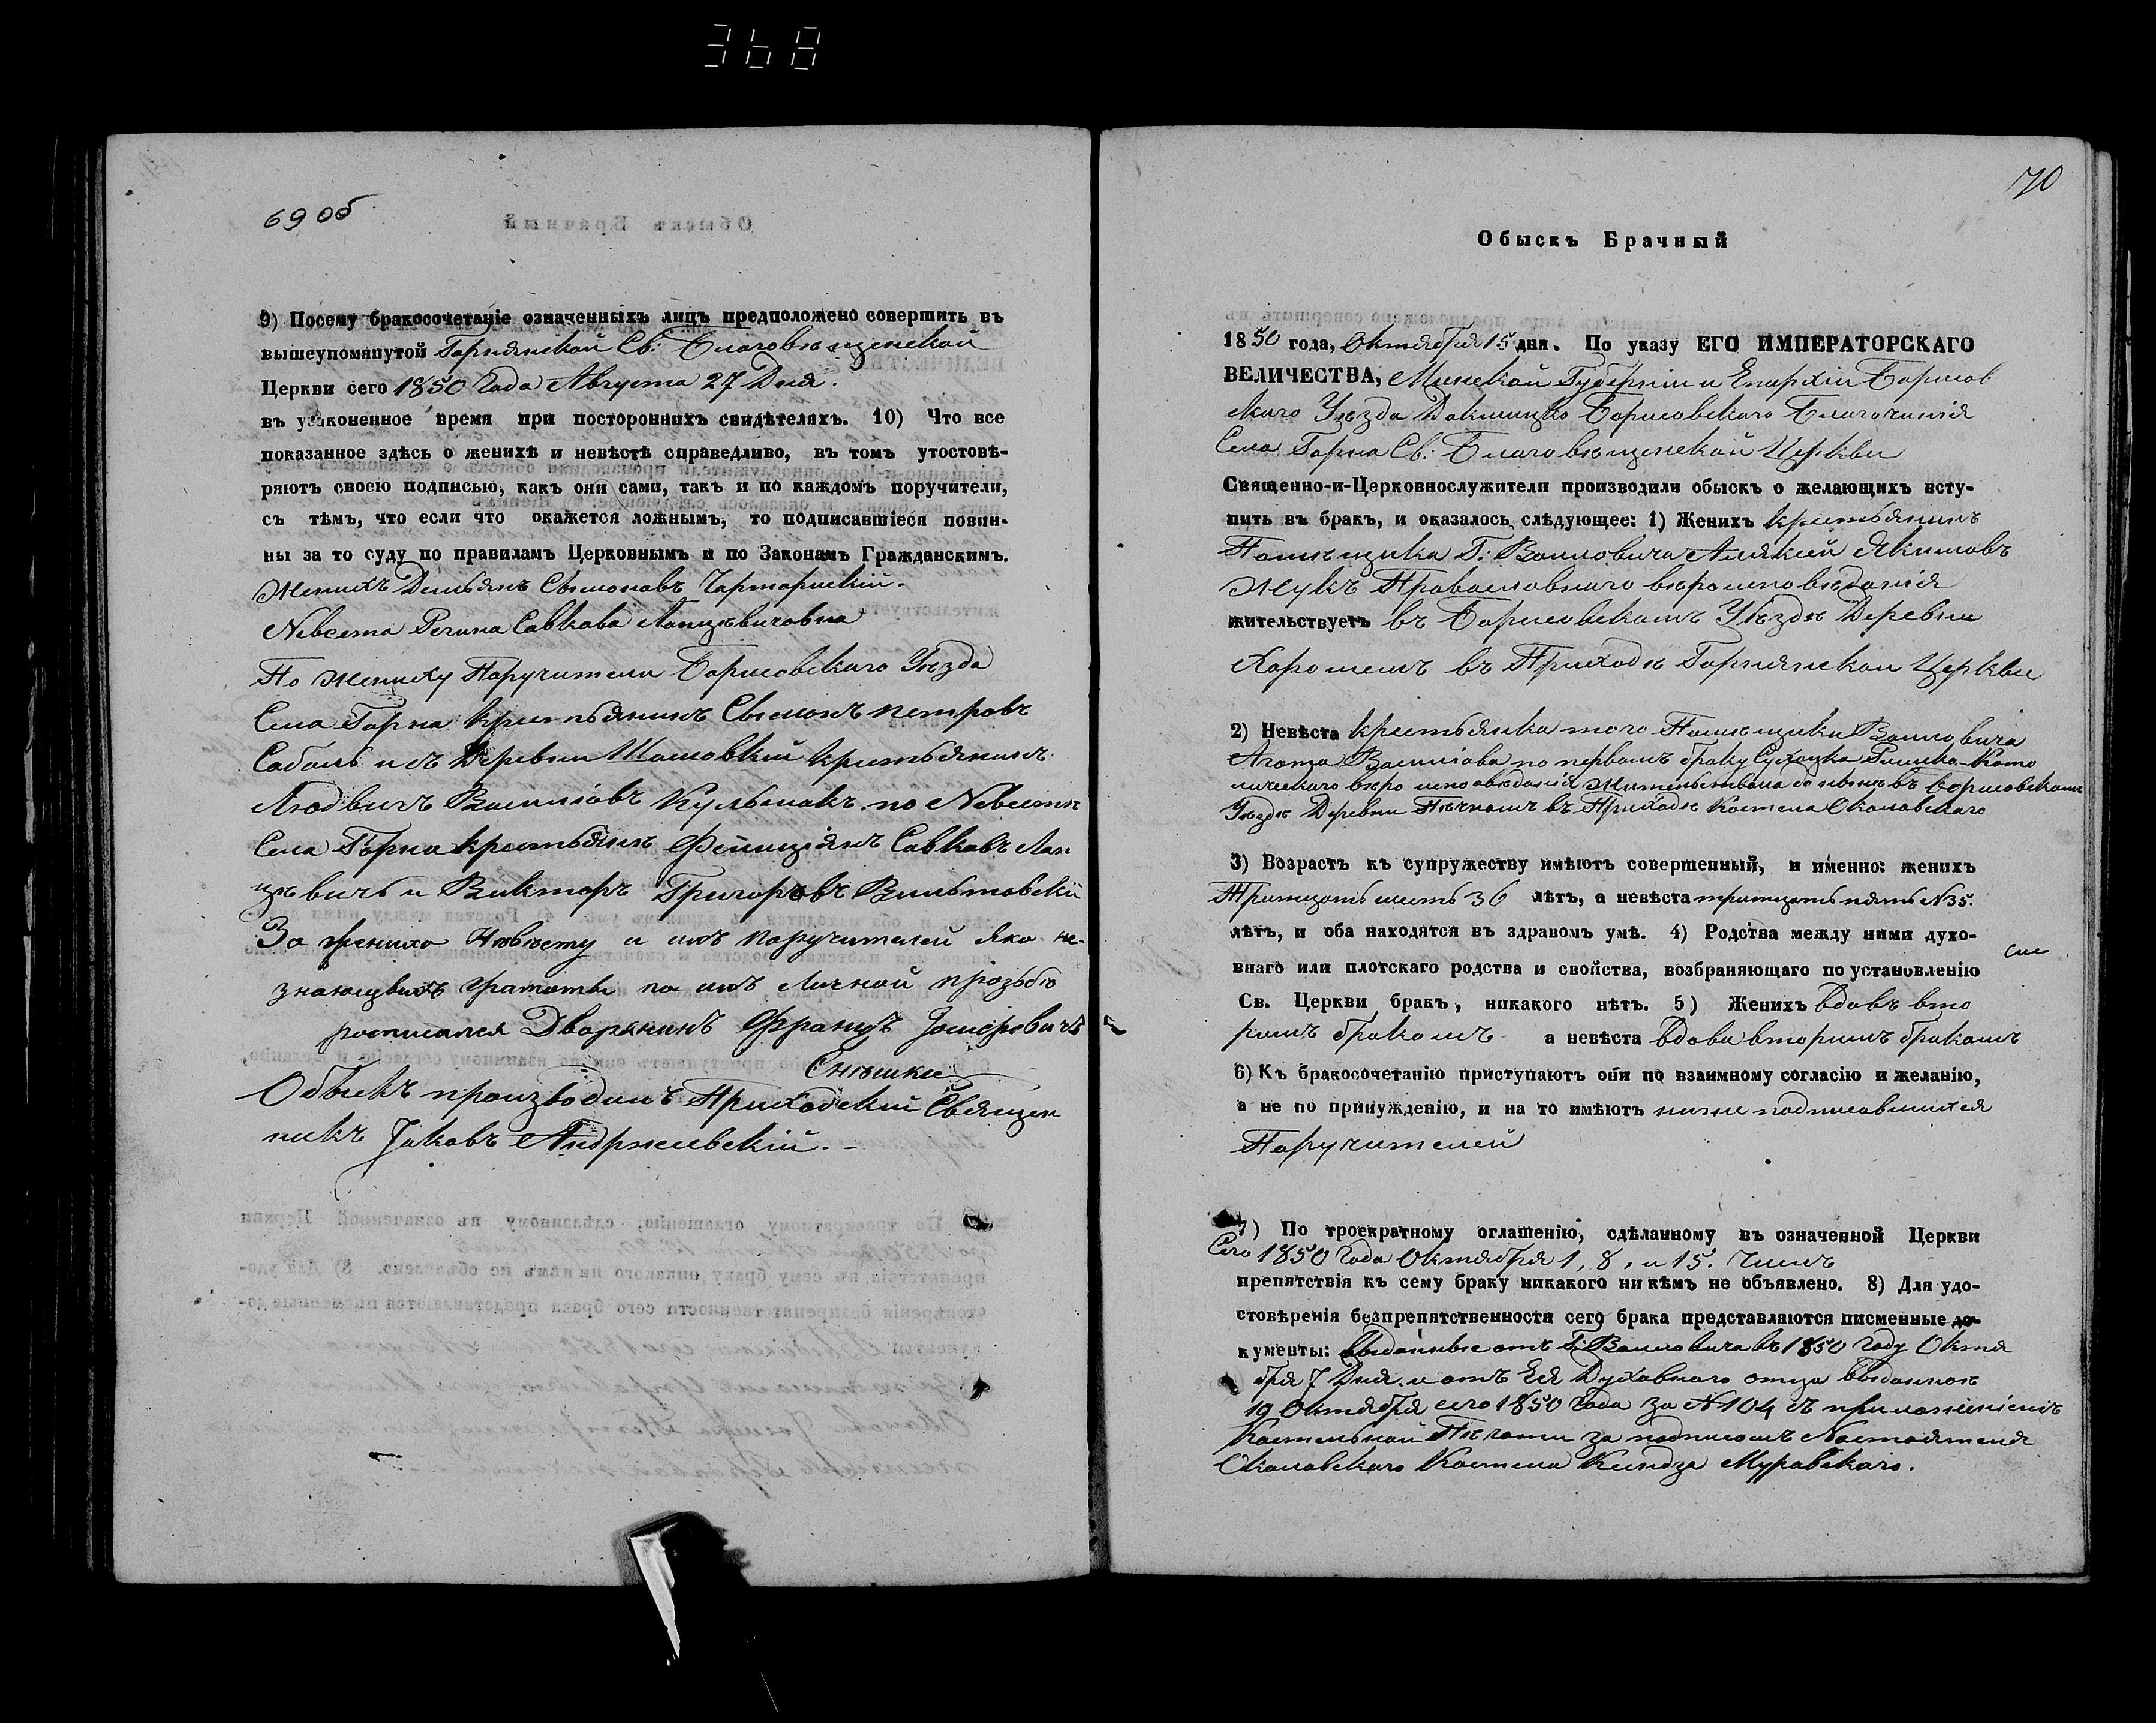 368
69 об
9) Посему бракосочетаніе означенныхъ лицъ предположено совершить въ
вышеупомянутой Горнянской Св: Благовѣщенской
Церкви сего 1850 года Августа 27 Дня.
въ узаконенное время при постороннихъ свидѣтеляхъ. 10) Что все
показанное здѣсь о женихѣ и невѣстѣ справедливо, въ томъ утостовѣ-
ряютъ своею подписью, какъ они сами, такъ и по каждомъ поручители,
съ тѣмъ, что если что окажется ложнымъ, то подписавшіеся повин-
ны за то суду по правиламъ Церковнымъ и по Законамъ Гражданскимъ.
Женихъ Демьянъ Сымонавъ
Невеста Савкова
По жениху Паручители Борисовскаго Уѣзда
Села Горна крестьянинъ Сымонъ петровъ
Саболь изъ Деревни крестьянинъ
Людвигъ Василіовъ по Невестѣ
Села Горна крестьянъ Савкавъ Лап
цѣвичь и Викторъ Григоровъ
За жениха Невѣсту и ихъ поручителей яко не-
знающвихъ граматы по ихъ личной прозьбѣ
росписался Дворянинъ Францъ Іосифовичъ
Обыскъ производилъ Приходскій Священ
никъ Іаковъ Андржиевскій. -
70
Обыскъ Брачный
1850 года, Октября 15 дня. По указу ЕГО ИМПЕРАТОРСКАГО
ВЕЛИЧЕСТВА, Минской Губерніи и Епархіи Борисов
скаго Уѣзда Докшицко Борисовскаго Благочинія
Села Горна Св: Благовѣщенской Церкви
Священно-и-Церковнослужители производили обыскъ о желающихъ всту-
пить въ бракъ, и оказалось слѣдующее: 1) Женихъ крестьянинъ
Помѣщика Г: Воловича Якимовъ
Жукъ Православнаго вѣроисповѣданія
жительствуетъ въ Борисовскомъ Уѣздѣ Деревни
въ Приходѣ Горнянской Церкви
2) Невѣста крестьянка того Помѣщика Воловича
Агата Василіова по первомъ браку Римско-Като
лическаго вѣроисповѣданія жительствена до нынѣ въ Борисовскомъ
Уѣздѣ Деревни въ Приходѣ Костела
3) Возрастъ къ супружеству имѣютъ совершенный, и именно: женихъ
Тритцать шесть 36 лѣтъ, а невѣста тритцать пять N 35.
лѣтъ, и оба находятся въ здравомъ умѣ. 4) Родства между ними духо-
внаго или плотскаго родства и свойства, возбраняющаго по установленію
Св. Церкви бракъ, никакого нѣтъ. 5) Женихъ вдовъ вто
римъ бракомъ а невѣста вдова вторимъ бракомъ
6) Къ бракосочетанію приступаютъ они по взаимному согласію и желанію,
а не по принужденію, и на то имѣютъ ниже подписавшихся
Паручителей
7) По троекратному оглашенію, сдѣланному въ означенной Церкви
Сего 1850 года Октября 1, 8, и 15. числъ
препятствія къ сему браку никакого ни кѣмъ не объявлено. 8) Для удо-
стовѣренія безпрепятственности сего брака представляются писменные до-
кументы: выданные отъ Г: Воловича въ 1850 году Октя
бря 7 Дня. и отъ Ея Духавнаго отца выданное
19 Октября сего 1850 года за N 104 съ приложеніемъ
Костельной Печати за подписомъ Настоятеля
Костела Ксендза Муравскаго.